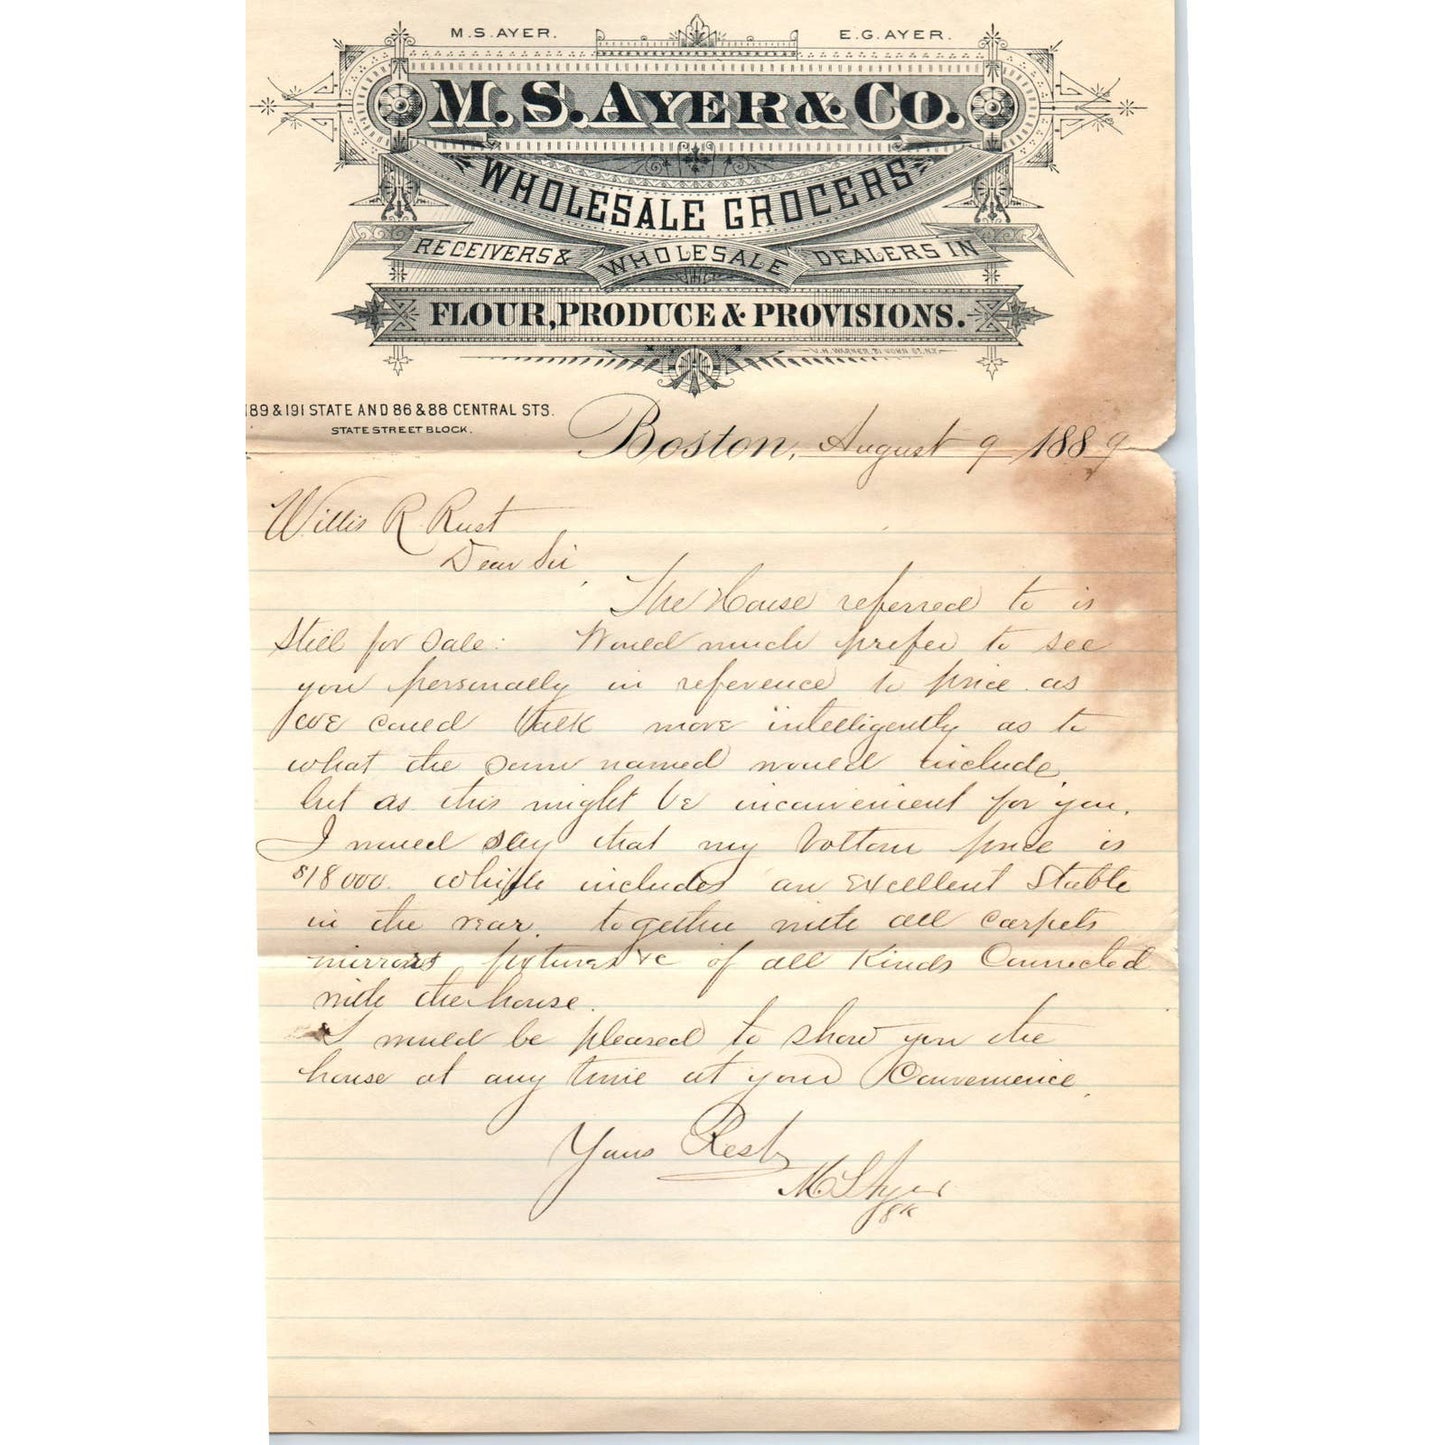 M.S.AYER.
E.G.AYER.
M.S.AYER & CO.
WHOLESALE GROCERS
RECEIVERS & WHOLESALE DEALERS IN
FLOUR, PRODUCE & PROVISIONS.
V.H. WARNER 31 JOHN ST. N.Y.
189 & 191 STATE AND 86 & 88 CENTRAL STS.
STATE STREET BLOCK.
Boston, August 9 1889
Willis R. Rust
Dear Sir
The House referred to is
Still for Sale: Would much prefer to see
you personally in reference to price as
we could talk more intelligently as to
what the sum named would include,
but as this might be inconvenient for you.
I would say that my bottom price is
$18000. which includes an Excellent Stable
in the rear. together with all carpets
mirrors fixtures &c of all Kinds Connected
with the house.
I would be pleased to show you the
house at any time at your Convenience.
Yours Resty
M S Ayer